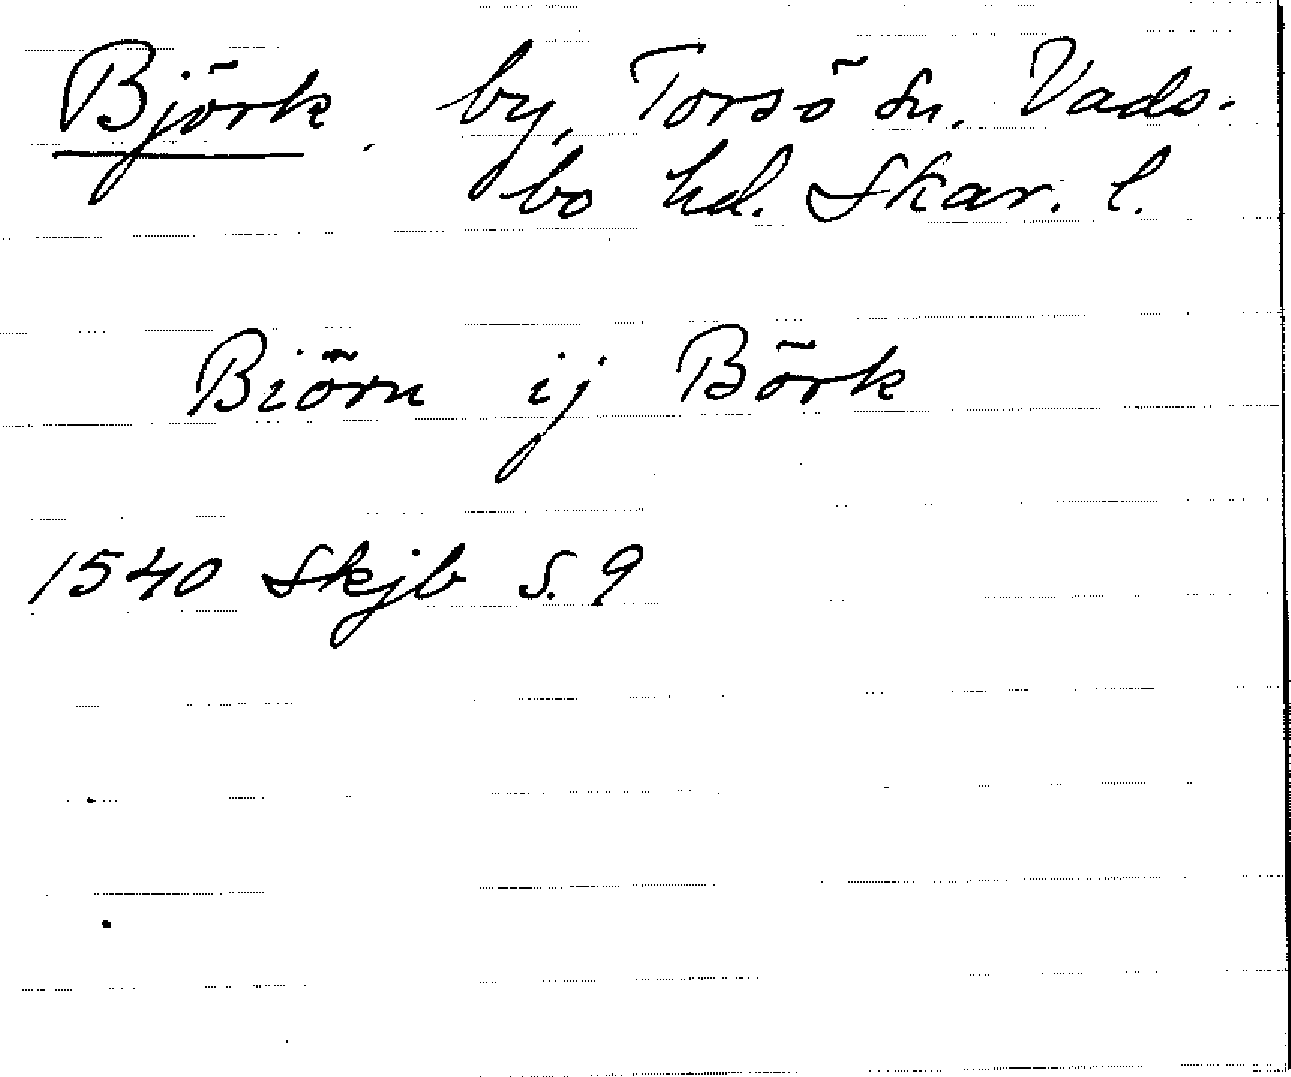 Björk. by, Torsö sn. Vads-
bo hd. Skar. l.
Biörn ij Börk
1540 Skjb s. 9